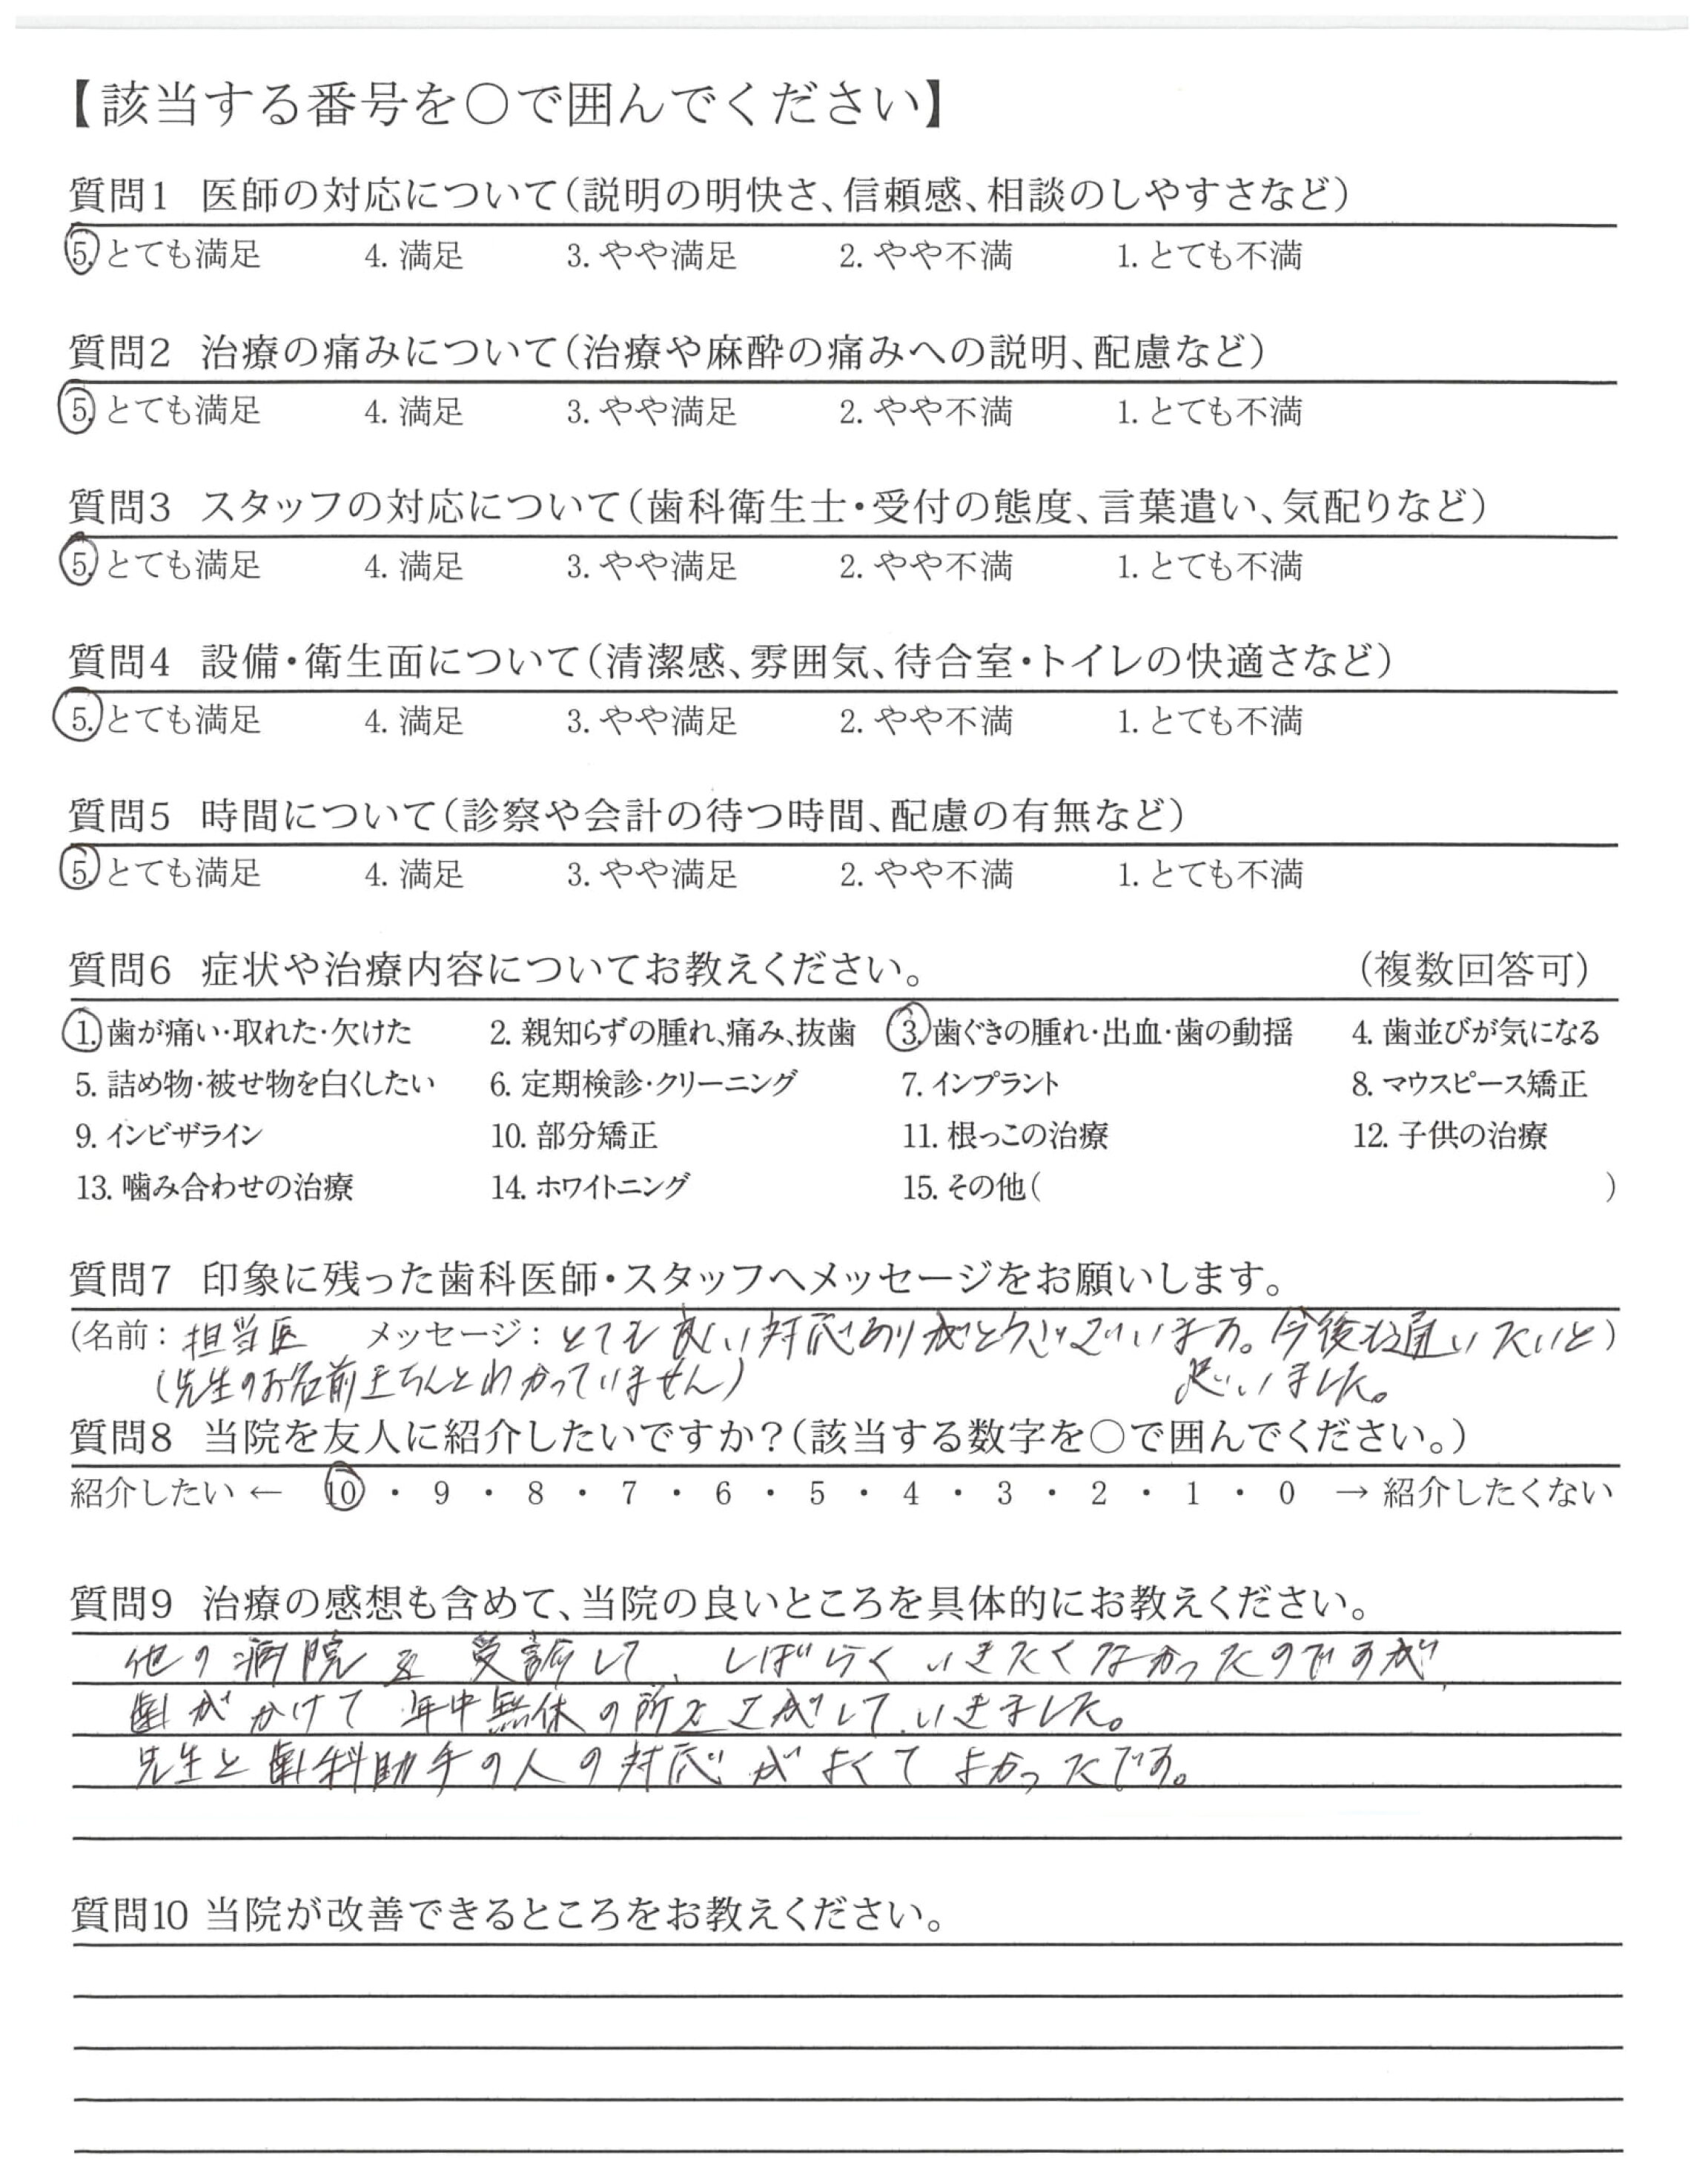 【該当する番号を○で囲んでください】
質問1 医師の対応について（説明の明快さ、信頼感、相談のしやすさなど）
5. とても満足 4. 満足 3. やや満足 2. やや不満 1. とても不満
質問2 治療の痛みについて（治療や麻酔の痛みへの説明、配慮など）
5. とても満足 4. 満足 3. やや満足 2. やや不満 1. とても不満
質問3 スタッフの対応について（歯科衛生士・受付の態度、言葉遣い、気配りなど）
5. とても満足 4. 満足 3. やや満足 2. やや不満 1. とても不満
質問4 設備・衛生面について（清潔感、雰囲気、待合室・トイレの快適さなど）
5. とても満足 4. 満足 3. やや満足 2. やや不満 1. とても不満
質問5 時間について（診察や会計の待つ時間、配慮の有無など）
5. とても満足 4. 満足 3. やや満足 2. やや不満 1. とても不満
質問6 症状や治療内容についてお教えください。 （複数回答可）
1. 歯が痛い・取れた・欠けた 2. 親知らずの腫れ、痛み、抜歯 3. 歯ぐきの腫れ・出血・歯の動揺 4. 歯並びが気になる
5. 詰め物・被せ物を白くしたい 6. 定期検診・クリーニング 7. インプラント 8. マウスピース矯正
9. インビザライン 10. 部分矯正 11. 根っこの治療 12. 子供の治療
13. 噛み合わせの治療 14. ホワイトニング 15. その他（ ）
質問7 印象に残った歯科医師・スタッフへメッセージをお願いします。
（名前：担当医 メッセージ：とても良い対応ありがとうございます。今後も通いたいと）
（先生のお名前きちんとわかっていません） 思いました。
質問8 当院を友人に紹介したいですか？（該当する数字を○で囲んでください。）
紹介したい ← 10 ・ 9 ・ 8 ・ 7 ・ 6 ・ 5 ・ 4 ・ 3 ・ 2 ・ 1 ・ 0 → 紹介したくない
質問9 治療の感想も含めて、当院の良いところを具体的にお教えください。
他の病院を受診して、しばらくいきたくなかったのですが、
歯がかけて年中無休の所をさがして、いきました。
先生と歯科助手の人の対応がよくてよかったです。
質問10 当院が改善できるところをお教えください。